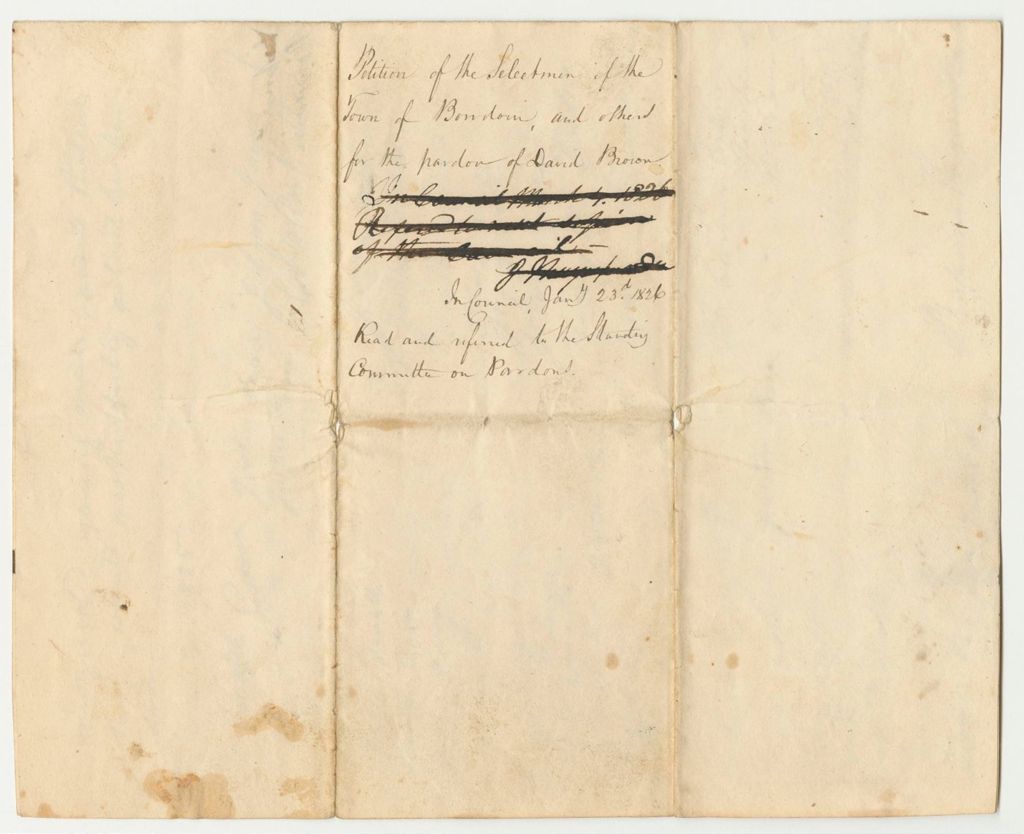 Petition of the Selectmen of the
Town of Bowdoin, and others
for the pardon of David Brown.
In Council March 1. 1826
Refered to next session
of the Council –
In Council, Jany 23d. 1826
Read and referred to the Standing
Committee on Pardons.